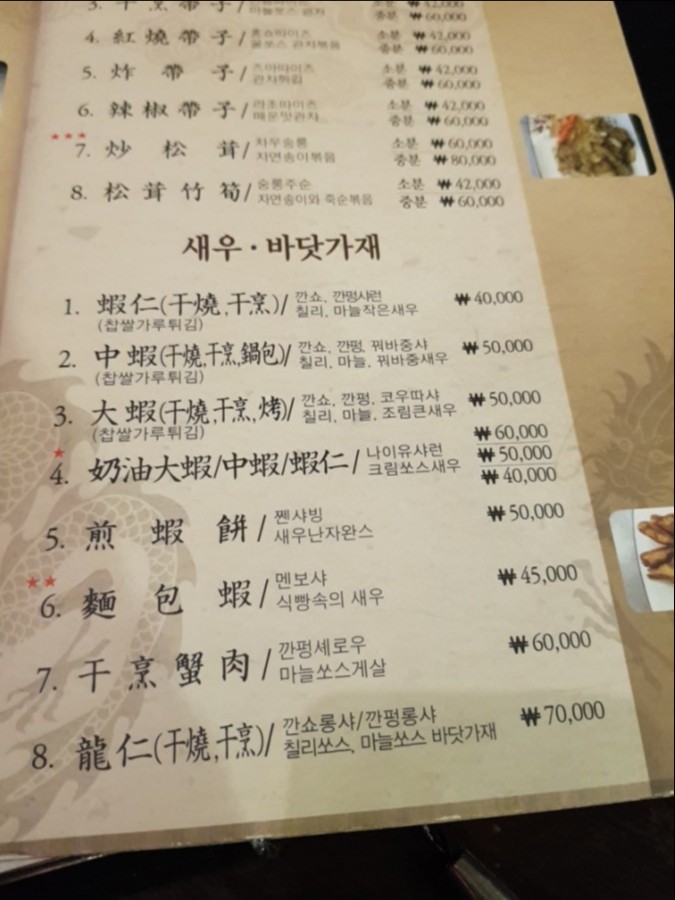 3. 干烹帶子/ 마늘쏘스 관자 소분 ₩42,000
중분 ₩60,000
4. 紅燒帶子/ 홍쇼따이즈 소분 ₩42,000
굴쏘스 관자볶음 중분 ₩60,000
5. 炸帶子/ 즈아따이즈 소분 ₩42,000
관자튀김 중분 ₩60,000
6. 辣椒帶子/ 라초따이즈 소분 ₩42,000
매운맛관자 중분 ₩60,000
★★★
7. 炒松茸/ 챠우숭룽 소분 ₩60,000
자연송이볶음 중분 ₩80,000
8. 松茸竹筍/ 숭룽주순 소분 ₩42,000
자연송이와 죽순볶음 중분 ₩60,000
새우·바닷가재
1. 蝦仁(干燒,干烹)/ 깐쇼, 깐펑샤런 ₩40,000
(찹쌀가루튀김) 칠리, 마늘작은새우
2. 中蝦(干燒,干烹,鍋包)/ 깐쇼, 깐펑, 꿔바중샤 ₩50,000
(찹쌀가루튀김) 칠리, 마늘, 꿔바중새우
3. 大蝦(干燒,干烹,烤)/ 깐쇼, 깐펑, 코우따샤 ₩50,000
(찹쌀가루튀김) 칠리, 마늘, 조림큰새우
★ ₩60,000
4. 奶油大蝦/中蝦/蝦仁/ 나이유샤런 ₩50,000
크림쏘스새우 ₩40,000
5. 煎蝦餠/ 쩬샤빙 ₩50,000
새우난자완스
★★
6. 麵包蝦/ 멘보샤 ₩45,000
식빵속의 새우
7. 干烹蟹肉/ 깐펑셰로우 ₩60,000
마늘쏘스게살
8. 龍仁(干燒,干烹)/ 깐쇼롱샤/깐펑롱샤 ₩70,000
칠리쏘스, 마늘쏘스 바닷가재